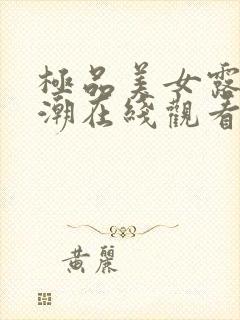 極品美女露
潮在綫觀看
黃麗